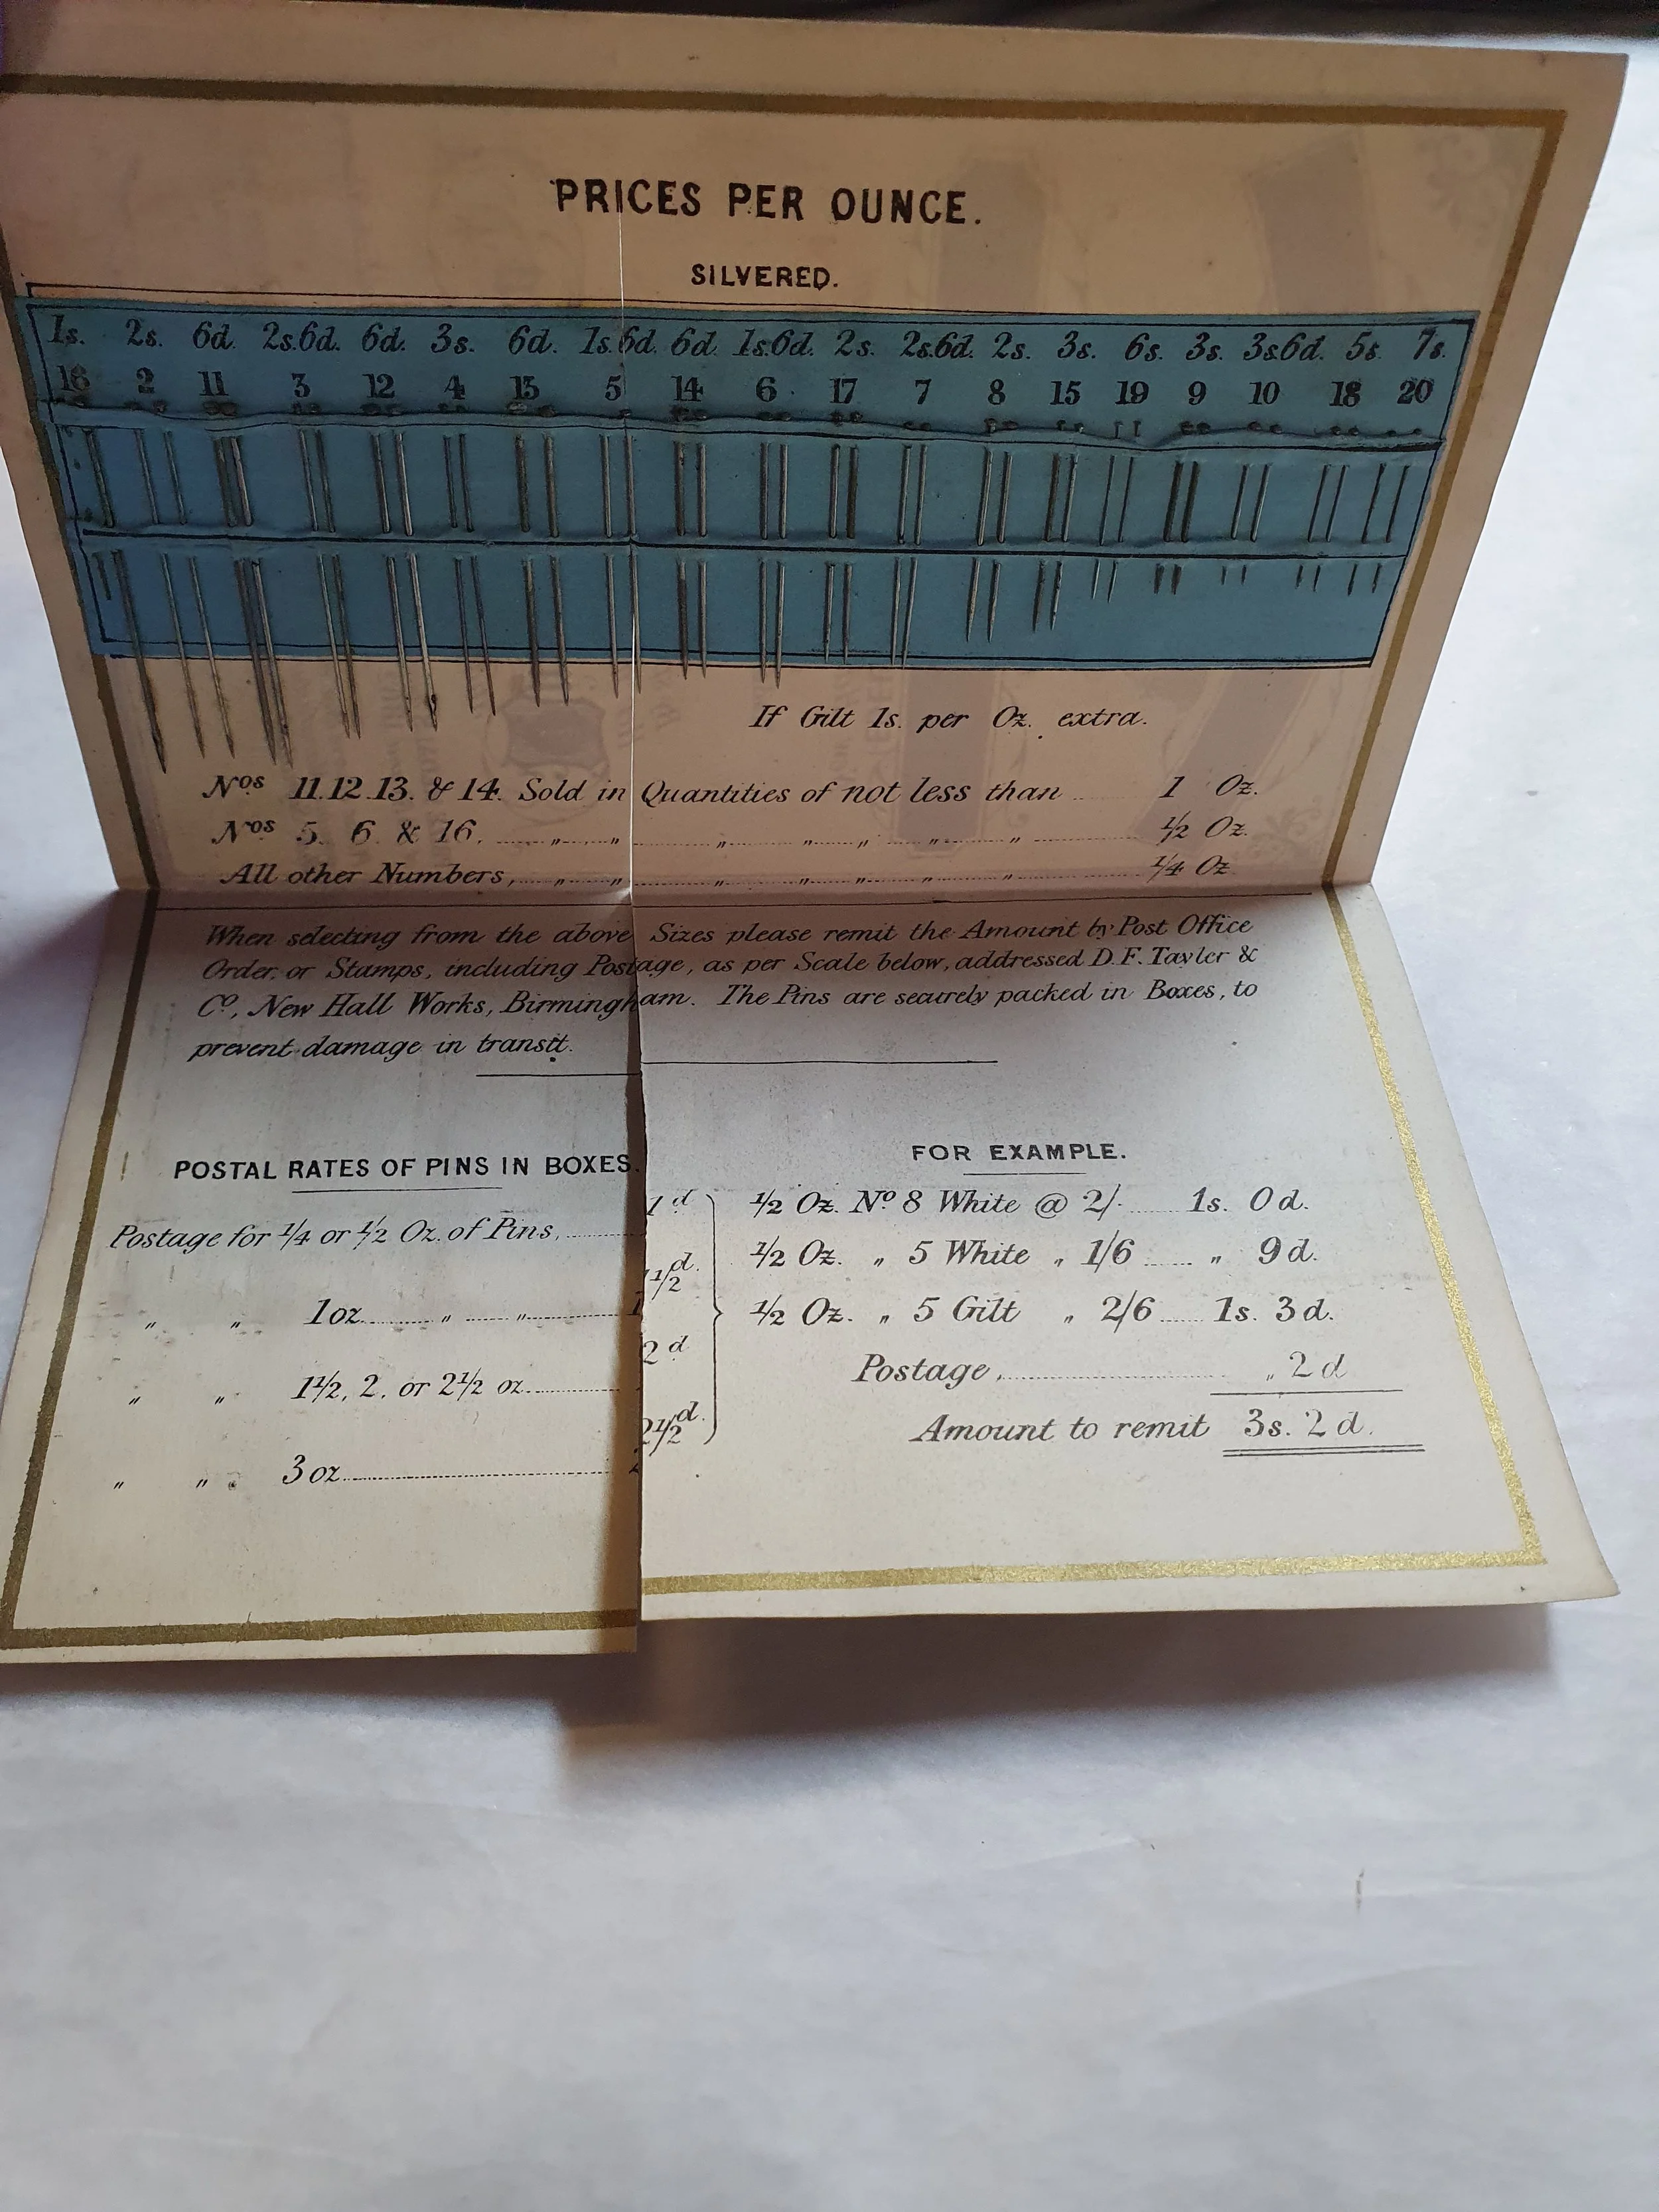 PRICES PER OUNCE.
SILVERED.
1s. 2s. 6d. 2s.6d. 6d. 3s. 6d. 1s.6d. 6d. 1s.6d. 2s. 2s.6d. 2s. 3s. 6s. 3s. 3s.6d. 5s. 7s.
16 2 11 3 12 4 13 5 14 6 17 7 8 15 19 9 10 18 20
If Gilt 1s. per Oz. extra.
Nos 11.12.13. & 14. Sold in Quantities of not less than .. 1 Oz.
Nos 5. 6. & 16. ...... „ ...... „ ...... „ ...... „ ...... „ ...... „ ...... „ ...... 1/2 Oz.
All other Numbers, .... „ ...... „ ...... „ ...... „ ...... „ ...... „ ...... „ ...... 1/4 Oz
When selecting from the above Sizes please remit the Amount by Post Office
Order, or Stamps, including Postage, as per Scale below, addressed D.F. Tayler &
Co, New Hall Works, Birmingham. The Pins are securely packed in Boxes, to
prevent damage in transit.
POSTAL RATES OF PINS IN BOXES.
Postage for 1/4 or 1/2 Oz. of Pins, ...... 1d
„ „ 1 oz ...... „ ...... „ ...... 1 1/2 d.
„ „ 1 1/2, 2, or 2 1/2 oz ...... 2 d
„ „ 3 oz ...... 2 1/2 d.
FOR EXAMPLE.
1/2 Oz. No 8 White @ 2/- ...... 1s. 0d.
1/2 Oz. „ 5 White „ 1/6 ...... „ 9d.
1/2 Oz. „ 5 Gilt „ 2/6 ...... 1s. 3d.
Postage, ...... „ 2d
Amount to remit 3s. 2d.